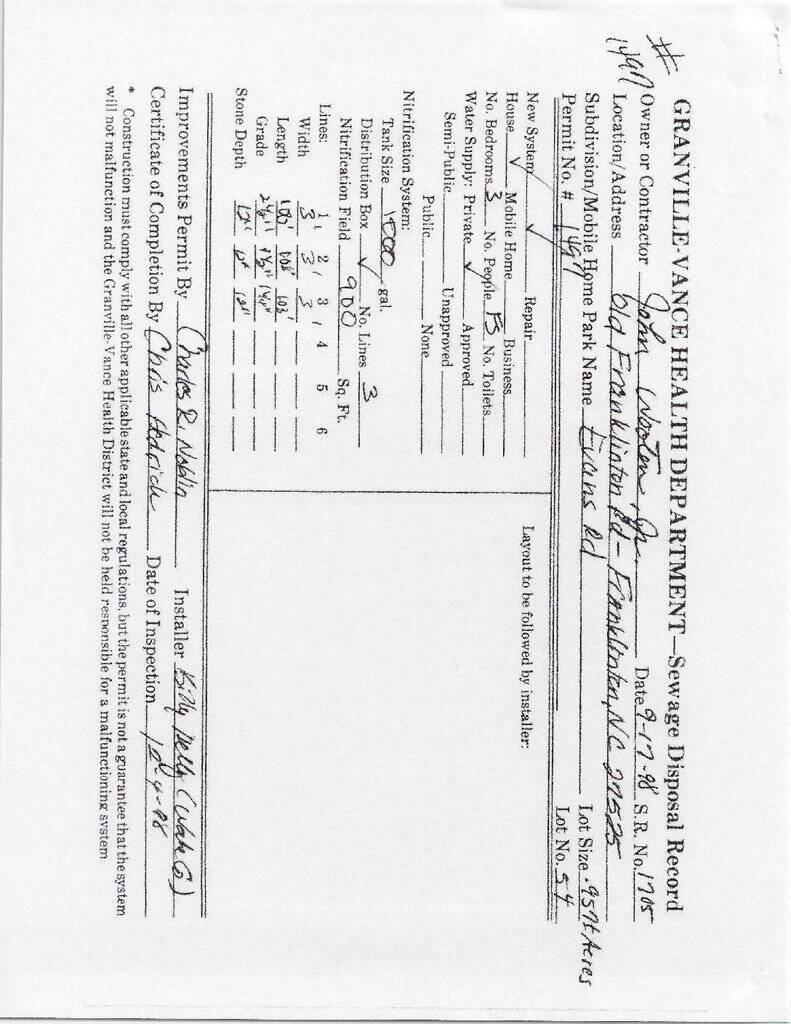 GRANVILLE-VANCE HEALTH DEPARTMENT—Sewage Disposal Record
# 1497
Owner or Contractor John Wooten, Jr. Date 9-17-98 S.R. No. 1705
Location/Address Old Franklinton Rd - Franklinton, NC 27525
Subdivision/Mobile Home Park Name Evans Rd Lot Size .957± Acres
Permit No. # 1497 Lot No. 54
New System ✓ Repair
House ✓ Mobile Home Business
No. Bedrooms 3 No. People No. Toilets
Water Supply: Private ✓ Approved
Semi-Public Unapproved
Public None
Layout to be followed by installer:
Nitrification System:
Tank Size 1000 gal.
Distribution Box ✓ No. Lines 3
Nitrification Field 900 Sq. Ft.
Lines: 1 2 3 4 5 6
Width 3' 3' 3'
Length
Grade
Stone Depth 12" 12" 12"
Improvements Permit By Charles R. Noblin Installer Billy
Certificate of Completion By Chris Date of Inspection
* Construction must comply with all other applicable state and local regulations, but the permit is not a guarantee that the system
will not malfunction and the Granville-Vance Health District will not be held responsible for a malfunctioning system